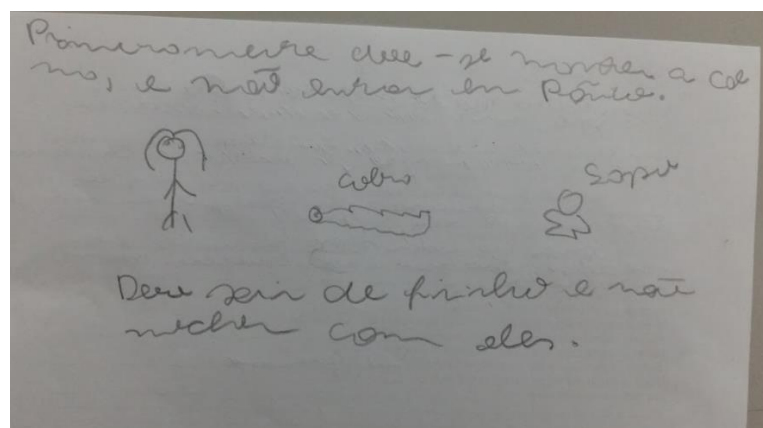 Primeiramente deve-se manter a cal
ma, e não entrar em Pânico.
cobra
sapo
Deve sair de fininho e não
mecher com eles.